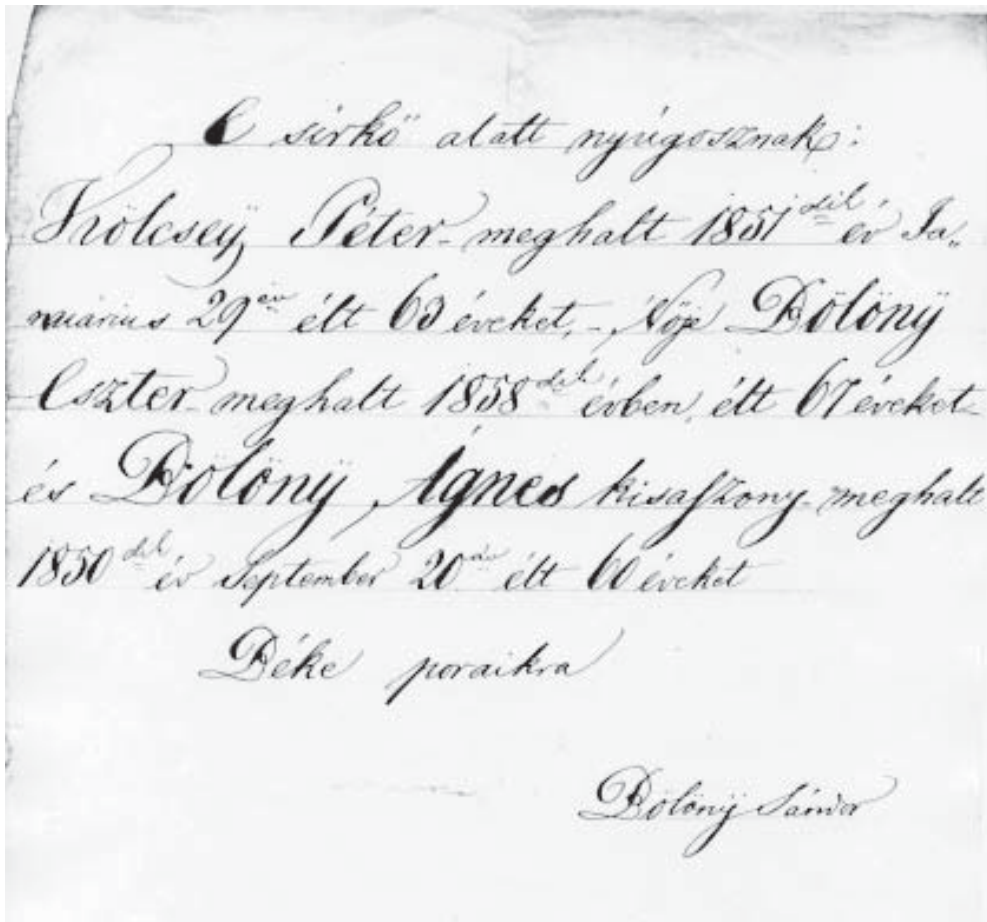 E sirkő alatt nyúgosznak:
Kölcseÿ Péter - meghalt 1851dik év Ja„
nuárius 29én élt 63 éveket, - Nője Bölönÿ
Eszter - meghalt 1858dik évben, élt 67 éveket -
és Bölönÿ Ágnes kisasszony - meghalt
1850dik év September 20án élt 60 éveket
Béke poraikra
Bölönÿ Sándor